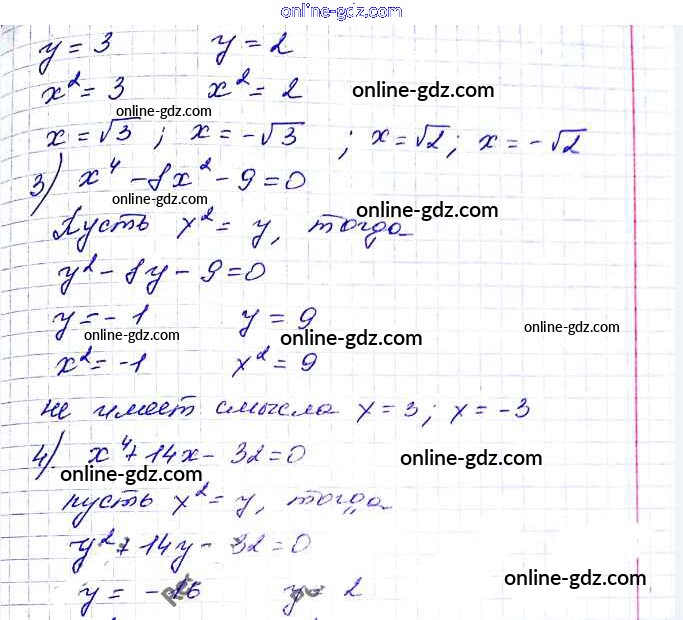 online-gdz.com
y = 3 y = 2
x² = 3 x² = 2 online-gdz.com
online-gdz.com
x = √3 ; x = -√3 ; x = √2 ; x = -√2
3) x⁴ - 8x² - 9 = 0
online-gdz.com online-gdz.com
Пусть x² = y, тогда
y² - 8y - 9 = 0
y = -1 y = 9
online-gdz.com online-gdz.com online-gdz.com
x² = -1 x² = 9
не имеет смысла x = 3; x = -3
4) x⁴ + 14x - 32 = 0
online-gdz.com online-gdz.com
пусть x² = y, тогда
y² + 14y - 32 = 0
online-gdz.com
y = -16 y = 2